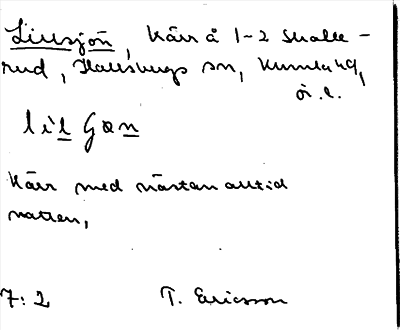 Lillsjön, Kärr å 1-2 Skalle-
rud, Hallsbergs sn, Kumla hd,
ö. l.
lil Gön
Kärr med nästan alltid
vatten,
7:2 T. Ericsson